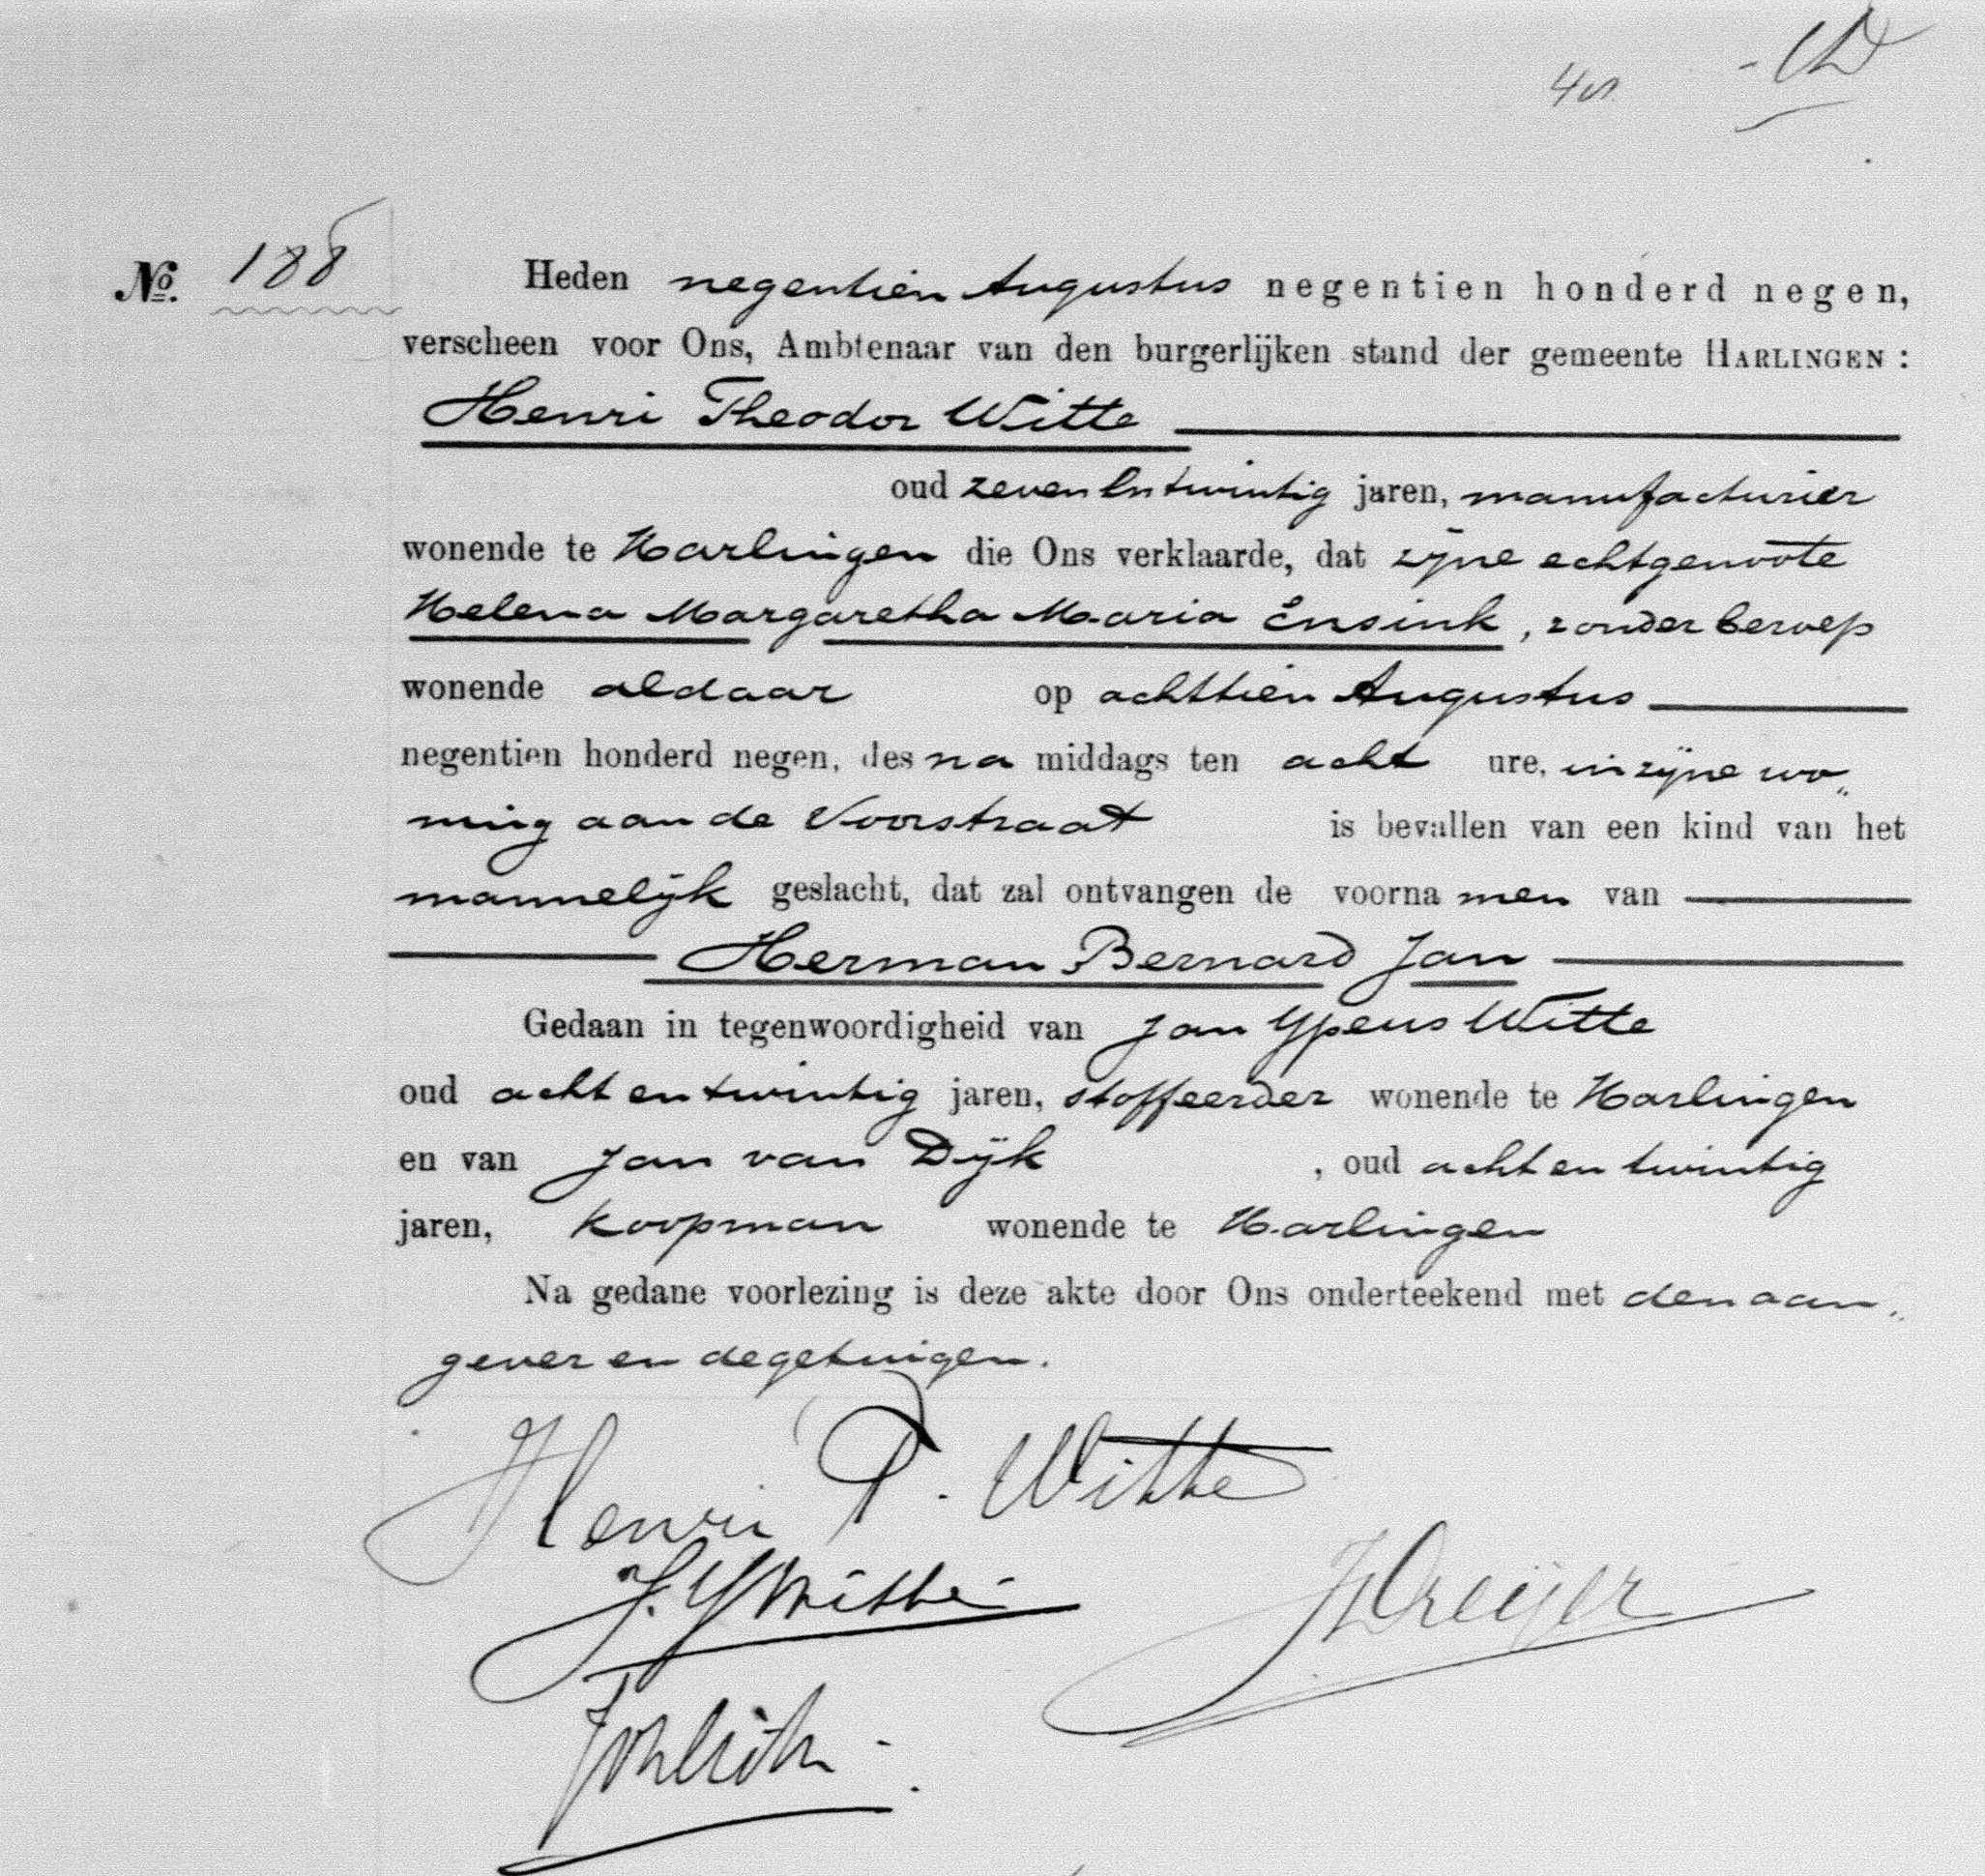 No. 188
Heden negentien Augustus negentien honderd negen,
verscheen voor Ons, Ambtenaar van den burgerlijken stand der gemeente HARLINGEN:
Henri Theodor Witte
oud zeven en twintig jaren, manufacturier
wonende te Harlingen die Ons verklaarde, dat zijne echtgenoote
Helena Margaretha Maria Ensink, zonder beroep
wonende aldaar op achttien Augustus
negentien honderd negen, des na middags ten acht ure, in zijne wo„
ning aan de Voorstraat is bevallen van een kind van het
mannelijk geslacht, dat zal ontvangen de voorna men van
Herman Bernard Jan
Gedaan in tegenwoordigheid van Jan Ypeus Witte
oud acht en twintig jaren, stoffeerder wonende te Harlingen
en van Jan van Dijk, oud acht en twintig
jaren, koopman wonende te Harlingen
Na gedane voorlezing is deze akte door Ons onderteekend met den aan„
gever en de getuigen.
Henri T. Witte
J. Y Witte